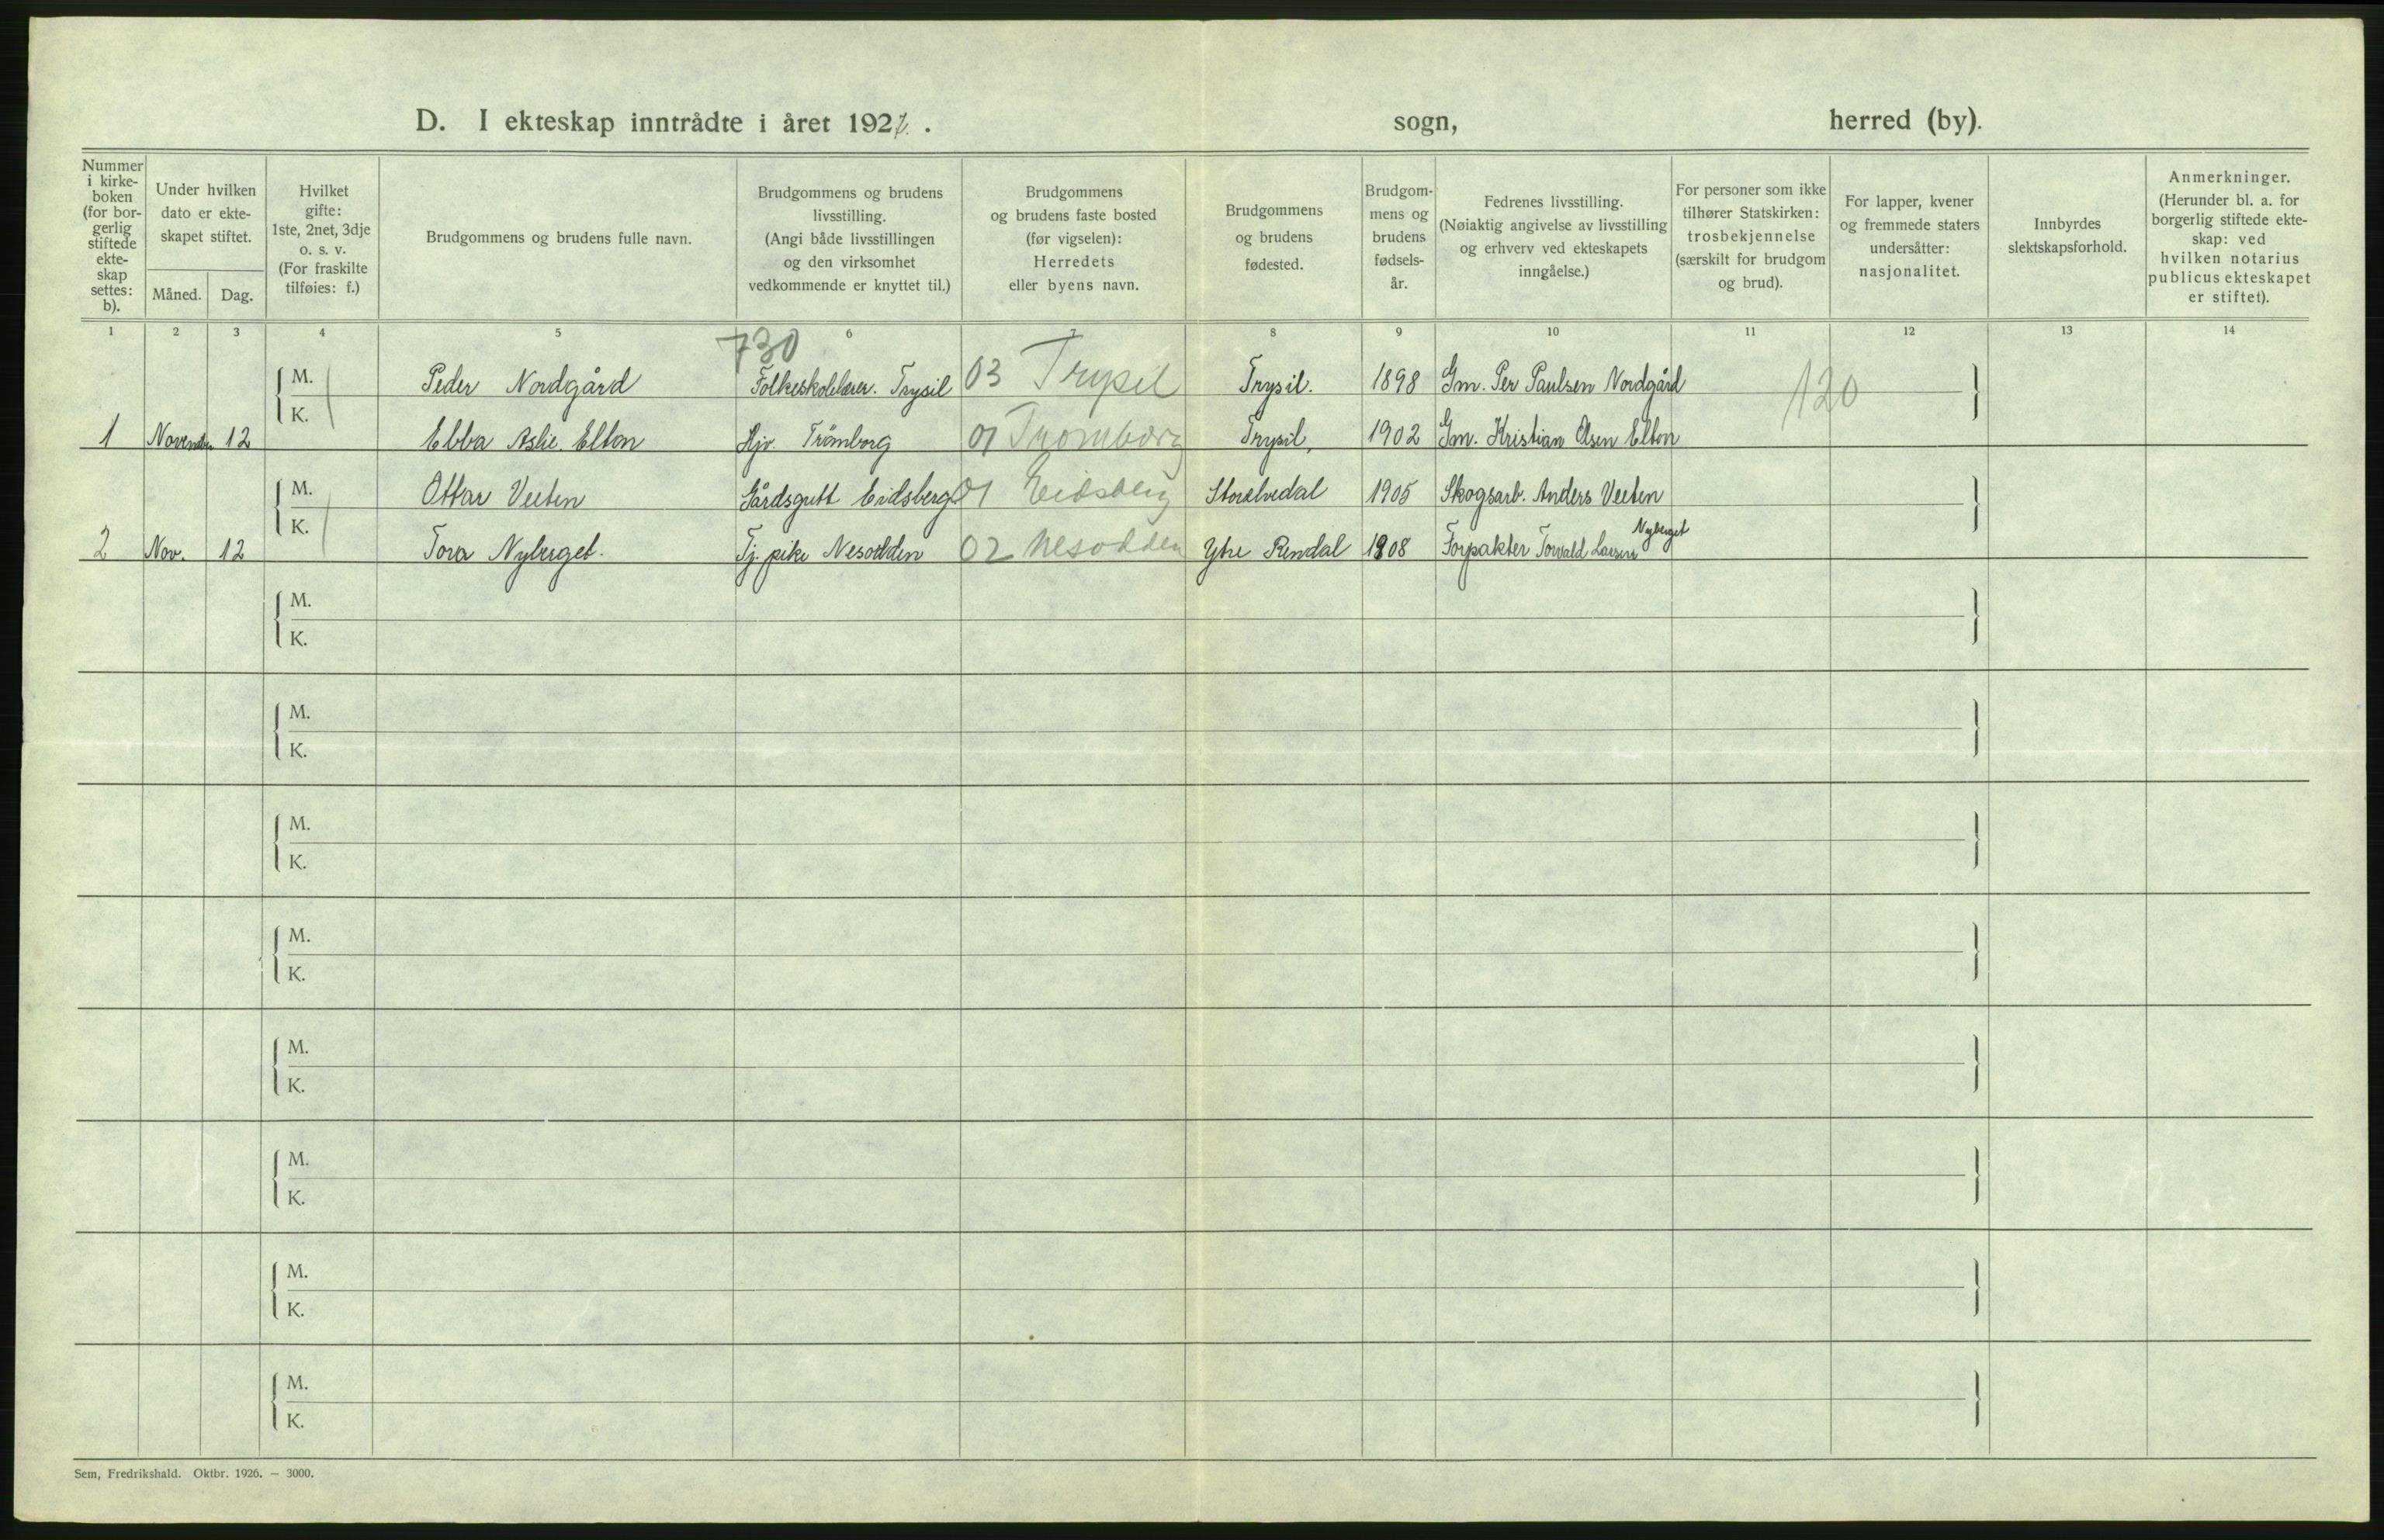 D. I ekteskap inntrådte i året 1927. sogn, herred (by).
Nummer i kirke-boken (for bor-gerlig stiftede ekte-skap settes: b).
Under hvilken dato er ekte-skapet stiftet.
Måned. Dag.
Hvilket gifte: 1ste, 2net, 3dje o. s. v. (For fraskilte tilføies: f.)
Brudgommens og brudens fulle navn.
Brudgommens og brudens livsstilling. (Angi både livsstillingen og den virksomhet vedkommende er knyttet til.)
Brudgommens og brudens faste bosted (før vigselen): Herredets eller byens navn.
Brudgommens og brudens fødested.
Brudgom-mens og brudens fødsels-år.
Fedrenes livsstilling. (Nøiaktig angivelse av livsstilling og erhverv ved ekteskapets inngåelse.)
For personer som ikke tilhører Statskirken: trosbekjennelse (særskilt for brudgom og brud).
For lapper, kvener og fremmede staters undersåtter: nasjonalitet.
Innbyrdes slektskapsforhold.
Anmerkninger. (Herunder bl. a. for borgerlig stiftede ekte-skap: ved hvilken notarius publicus ekteskapet er stiftet).
1 2 3 4 5 6 7 8 9 10 11 12 13 14
730
M. Peder Nordgård Folkeskolelærer. Trysil 03 Trysil Trysil. 1898 Gm. Per Paulsen Nordgård 120
1 November 12 K. Ebba Aslie Elton Hjv. Trömborg 01 Tromborg Trysil, 1902 Gm. Kristian Olsen Elton
M. Ottar Veeten Gårdsgutt Eidsberg 01 Eidsberg Storelvedal 1905 Skogsarb. Anders Veeten
2 Nov. 12 K. Tora Nyberget. Tj. pike Nesodden 02 Nesodden Ytre Rendal 1908 Forpakter Torvald Larsen Nyberget
M.
K.
M.
K.
M.
K.
M.
K.
M.
K.
M.
K.
M.
K.
M.
K.
Sem, Fredrikshald. Oktbr. 1926. — 3000.